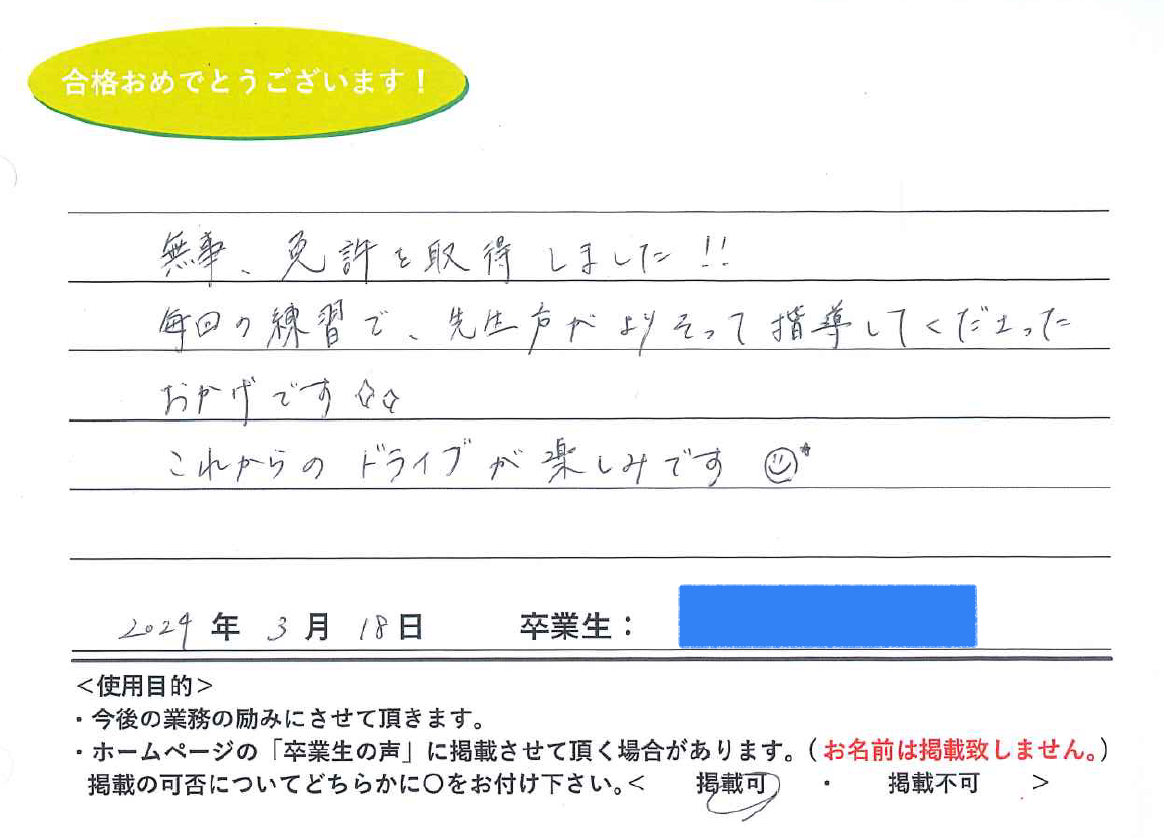 合格おめでとうございます！
無事、免許を取得しました!!
毎回の練習で、先生方がよりそって指導してくださった
おかげです☆☆
これからのドライブが楽しみです
2024年3月18日 卒業生：
＜使用目的＞
・今後の業務の励みにさせて頂きます。
・ホームページの「卒業生の声」に掲載させて頂く場合があります。（お名前は掲載致しません。）
掲載の可否についてどちらかに〇をお付け下さい。＜ 掲載可 ・ 掲載不可 ＞